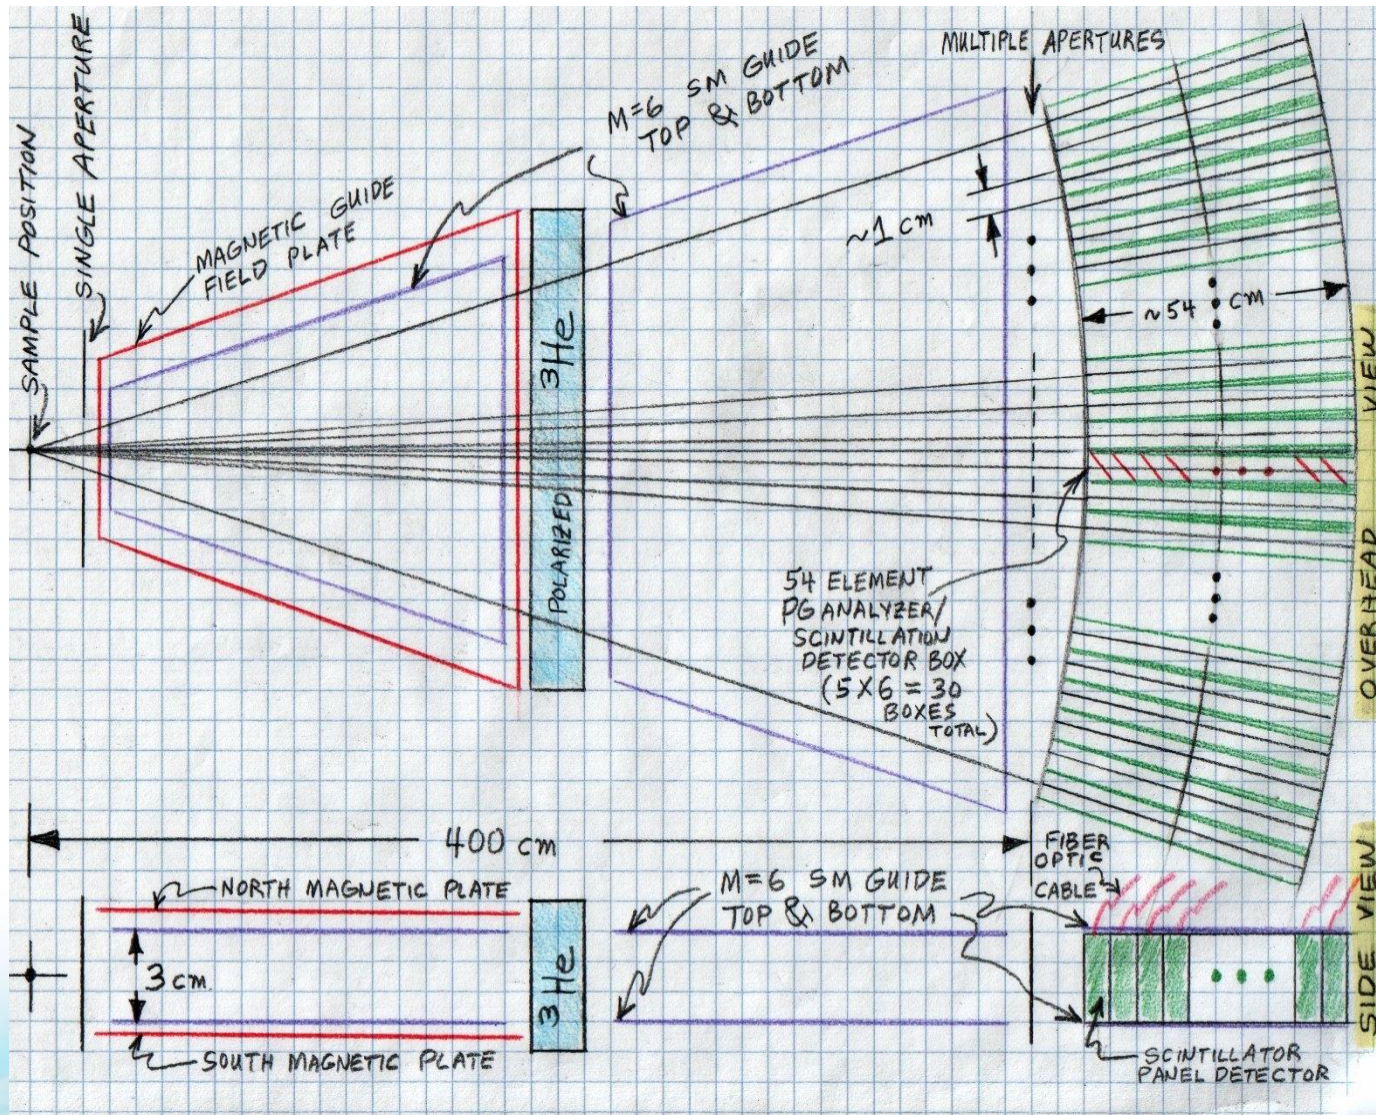 SAMPLE POSITION
SINGLE APERTURE
MAGNETIC GUIDE
FIELD PLATE
M=6 SM GUIDE
TOP & BOTTOM
MULTIPLE APERTURES
~1 cm
~54 cm
POLARIZED 3He
54 ELEMENT
PG ANALYZER/
SCINTILLATION
DETECTOR BOX
(5X6=30
BOXES
TOTAL)
OVERHEAD VIEW
400 cm
FIBER
OPTIC
CABLE
NORTH MAGNETIC PLATE
M=6 SM GUIDE
TOP & BOTTOM
3 cm.
3He
SOUTH MAGNETIC PLATE
SCINTILLATOR
PANEL DETECTOR
SIDE VIEW